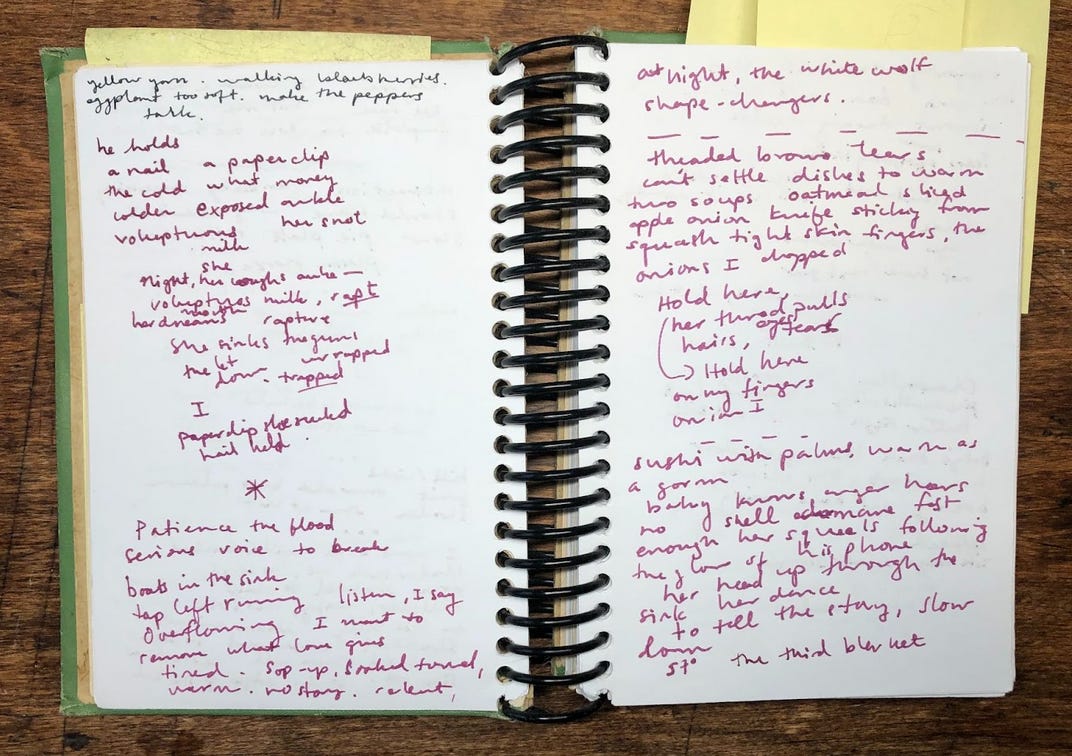 yellow yarn. walking blackberries.
eggplant too soft. make the peppers
talk.
he holds
a nail a paperclip
the cold what money
colder exposed ankle
voluptuous her snot
milk
she
night, her coughs awake —
voluptuous milk, rapt
mouth
her dreams rapture
she sinks the gums
the let unwrapped
down. trapped
I
paperclip she
nail held.
*
Patience the flood
serious voice to break
boats in the sink
tap left running listen, I say
Overflowing I want to
remove what love gives
tired. Sop-up, soaked tunnel,
warm. no stay. relent,
at night, the white wolf
shape-changers.
theaded brown tears
can't settle dishes to warm
two soups oatmeal sliced
apple onion knife sticky from
squash tight skin fingers, the
onions I chopped
Hold here
her thread pulls
eyes
hairs, tears
Hold here
on my fingers
onion I
sushi with palms, warm as
a germ
baby knows anger hears
no shell fast
enough her squeels following
the glow of his phone
her head up through the
sink her dance
to tell the story, slow
down
57° the third blanket